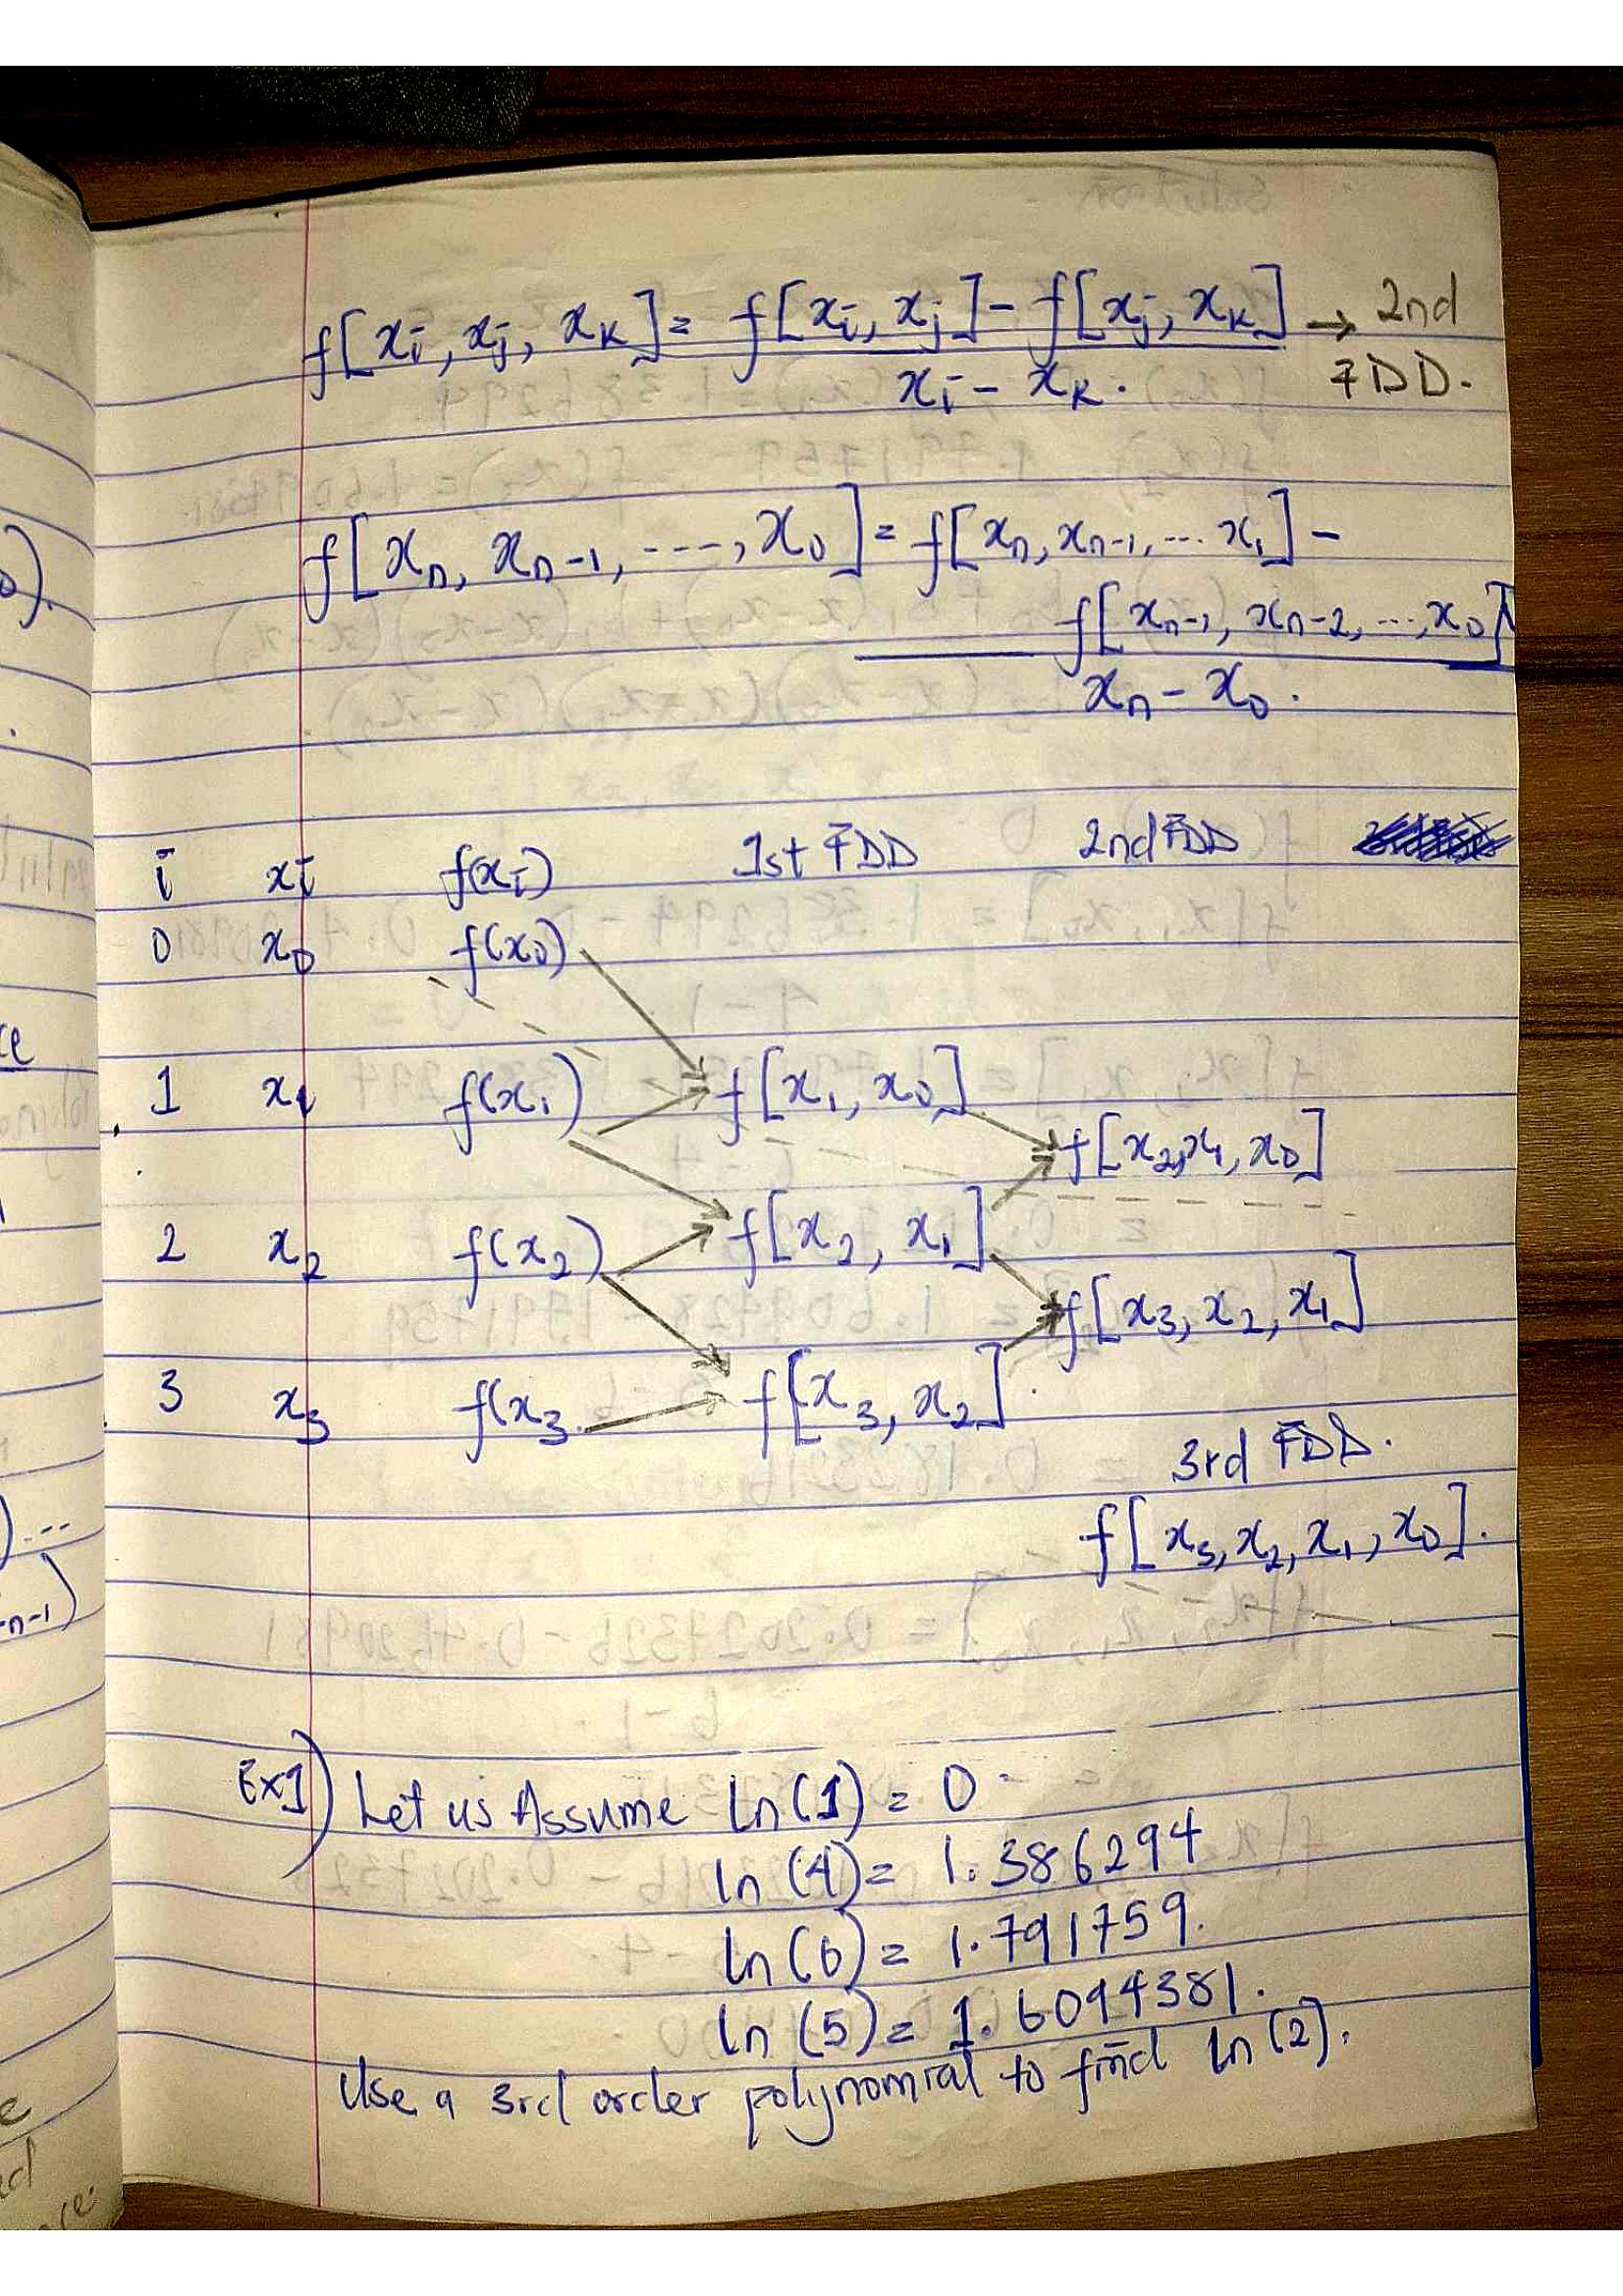 f[xi, xj, xk] = f[xi, xj] - f[xj, xk] → 2nd
xi - xk. FDD.
f[xn, xn-1, ---, x0] = f[xn, xn-1, ... x1] -
f[xn-1, xn-2, ..., x0]
xn - x0.
i xi f(xi) 1st FDD 2nd FDD
0 x0 f(x0)
1 x1 f(x1) f[x1, x0]
f[x2, x1, x0]
2 x2 f(x2) f[x2, x1]
f[x3, x2, x1]
3 x3 f(x3 f[x3, x2].
3rd FDD.
f[x3, x2, x1, x0].
Ex1) Let us Assume ln(1) = 0
ln(4) = 1.386294
ln(6) = 1.791759.
ln(5) = 1.6094381.
Use a 3rd order polynomial to find ln(2).